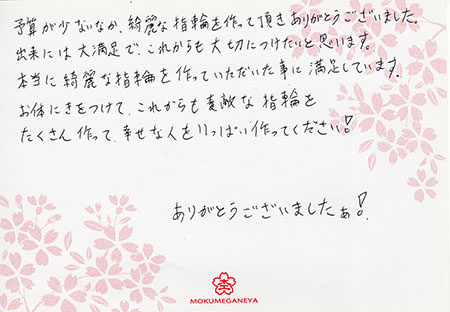 予算が少ないなか、綺麗な指輪を作って頂きありがとうございました。
出来には大満足で、これからも大切につけたいと思います。
本当に綺麗な指輪を作っていただいた事に満足しています。
お体にきをつけて、これからも素敵な指輪を
たくさん作って、幸せな人をいっぱい作ってください!
ありがとうございましたぁ!
MOKUMEGANEYA